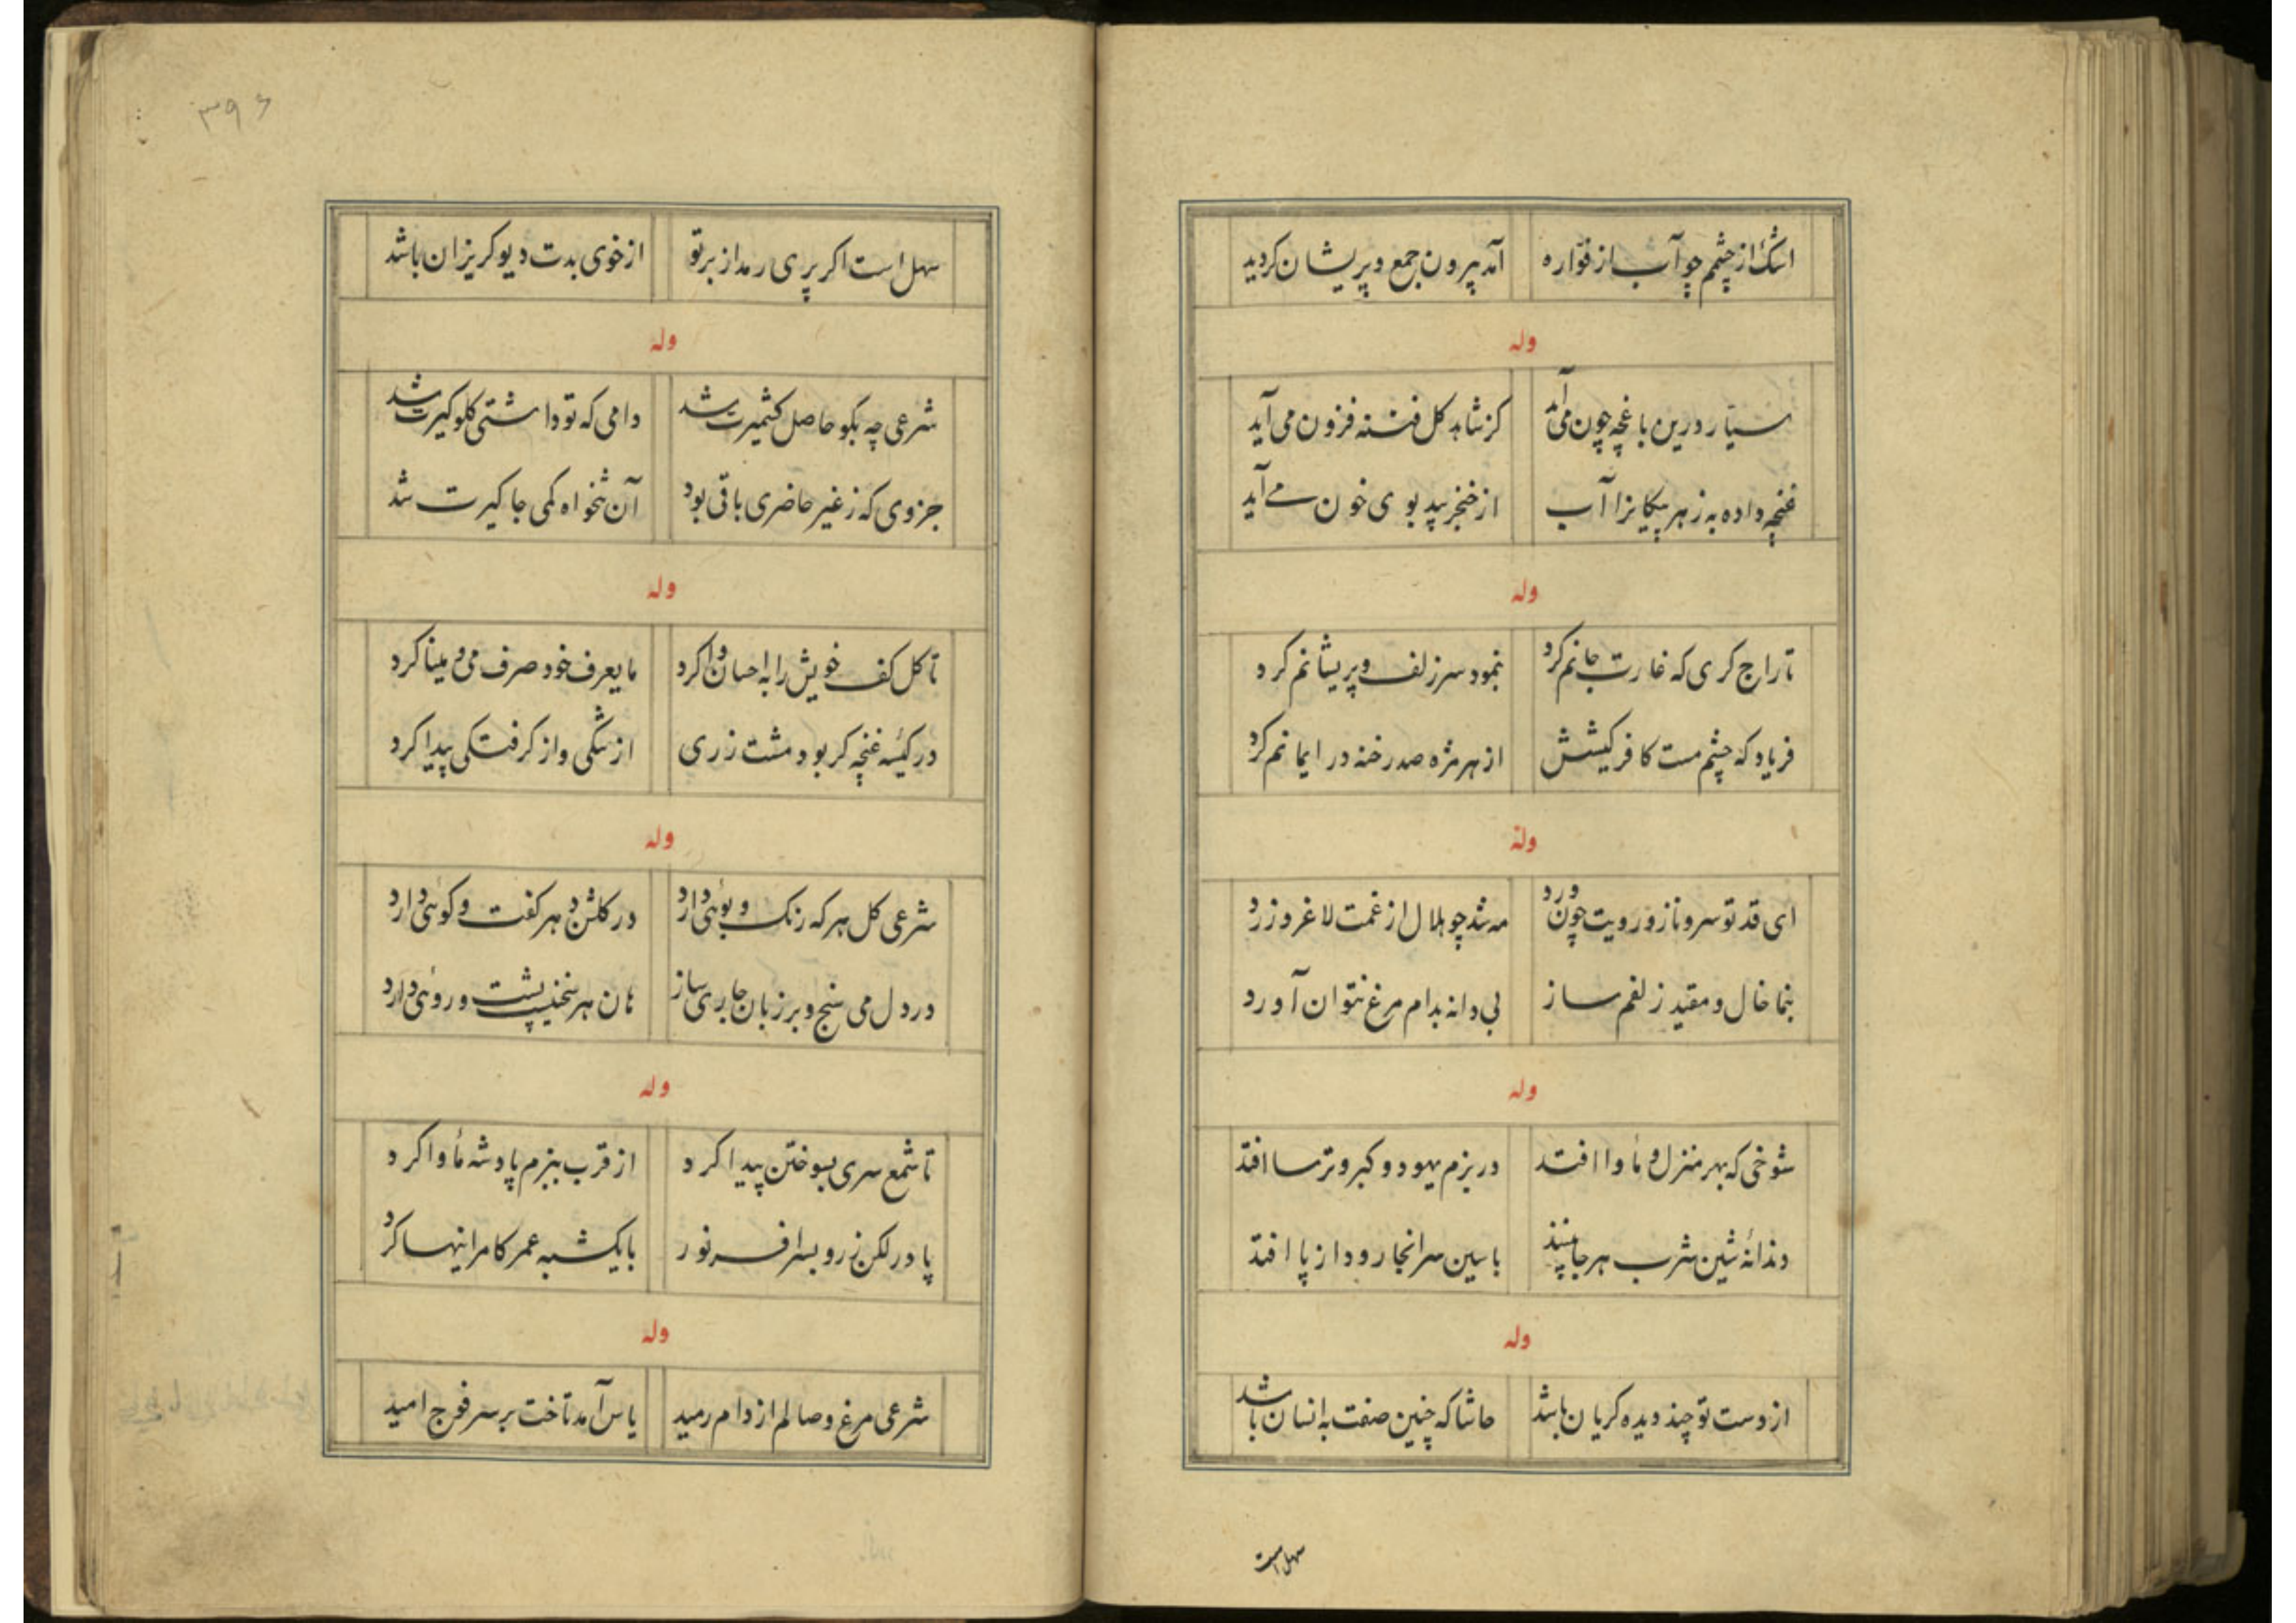 اشک از چشمم چو آب از فواره آمد بیرون جمع و پریشان کردید
وله
سیار درین باغچه چون می آمد کز شاهد کل فتنه فزون می آید
غنچه داده به زهر پیکانرا آب از خنجر بید بوی خون می آید
وله
تاراج کری که غارت جانم کرد بنمود سر زلف و پریشانم کرد
فریاد که چشم مست کافر کیشش از هر مژه صد رخنه در ایمانم کرد
وله
ای قد تو سرو ناز و رویت چون ورد مه شد چو هلال از غمت لاغر و زرد
بنما خال و مقید زلفم ساز بی دانه بدام مرغ نتوان آورد
وله
شوخی که بهر منزل و مأوا افتد در بزم یهود و کبر و ترسا افتد
دندانۀ شین شرب هر جا بیند با سین سر انجا رود از پا افتد
وله
از دست تو چند دیده کریان باشد حاشا که چنین صفت به انسان باشد
سهل است
۳۹۶
سهل است اکر پری رمد از بر تو از خوی بدت دیو کریزان باشد
وله
شرعی چه بکو حاصل کشمیرت شد دامی که تو داشتی کلوکیرت شد
جزوی که ز غیر حاضری باقی بود آن تنخواه کمی جاکیرت شد
وله
تا کل کف خویش را به احسان وا کرد مایعرف خود صرف می و مینا کرد
در کیسۀ غنچه کر بود مشت زری از تنکی و از کرفتکی پیدا کرد
وله
شرعی کل هر که رنک و بوئی دارد در کلشن دهر کفت و کوئی دارد
در دل می سنج و بر زبان جاری ساز هان هر سخنی پشت و روئی دارد
وله
تا شمع سری بسوختن پیدا کرد از قرب ببزم پادشه مأوا کرد
پا در لکن زر و بسر افسر نور با یکشبه عمر کامرانیها کرد
وله
شرعی مرغ وصالم از دام رمید یاس آمد تاخت بر سر فوج امید